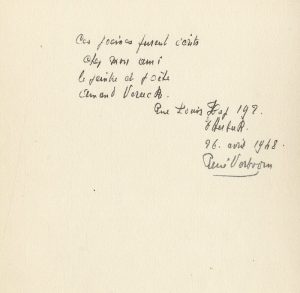 Ces poèmes furent écrits
chez mon ami
le peintre et poète
Armand
Rue Louis Hap 197.
Etterbeek.
26. avril 1948.
René Verboom